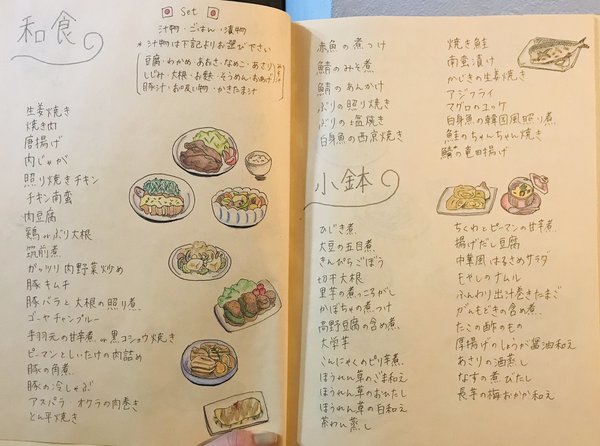 和食
Set
汁物・ごはん・漬物
* 汁物は下記よりお選び下さい
豆腐・わかめ・あおさ・なめこ・あさり
しじみ・大根・お麩・そうめん・おあげ
豚汁・お吸い物・かきたま汁
生姜焼き
焼き肉
唐揚げ
肉じゃが
照り焼きチキン
チキン南蛮
肉豆腐
鶏 or ぶり大根
筑前煮
ガッツリ肉野菜炒め
豚キムチ
豚バラと大根の照り煮
ゴーヤチャンプルー
手羽元の甘辛煮 or 黒コショウ焼き
ピーマンとしいたけの肉詰め
豚の角煮
豚の冷しゃぶ
アスパラ・オクラの肉巻き
とん平焼き
赤魚の煮つけ
鯖のみそ煮
鯖のあんかけ
ぶりの照り焼き
ぶりの塩焼き
白身魚の西京焼き
焼き鮭
南蛮漬け
かじきの生姜焼き
アジフライ
マグロのユッケ
白身魚の韓国風照り煮
鮭のちゃんちゃん焼き
鯖の竜田揚げ
小鉢
ひじき煮
大豆の五目煮
きんぴらごぼう
切干大根
里芋の煮っころがし
かぼちゃの煮つけ
高野豆腐の含め煮
大学芋
こんにゃくのピリ辛煮
ほうれん草のごま和え
ほうれん草のおひたし
ほうれん草の白和え
茶わん蒸し
ちくわとピーマンの甘辛煮
揚げだし豆腐
中華風はるさめサラダ
モヤシのナムル
ふんわり出汁巻きたまご
がんもどきの含め煮
たこの酢のもの
厚揚げのしょうが醤油和え
あさりの酒蒸し
なすの煮びたし
長芋の梅おかか和え